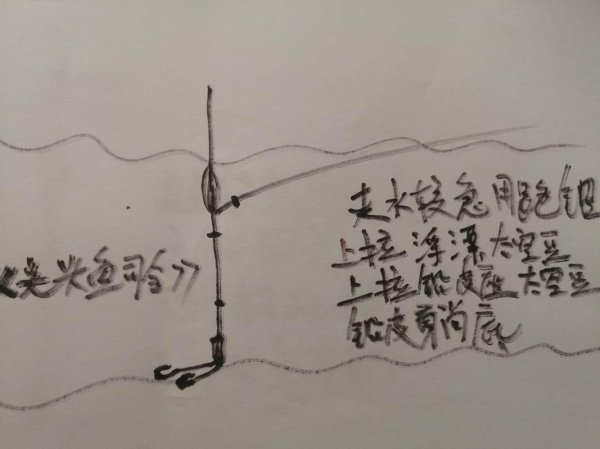 走水较急用跑铅
上拉浮漂太空豆
上拉铅皮座太空豆
铅皮底
《吴兴鱼司令》